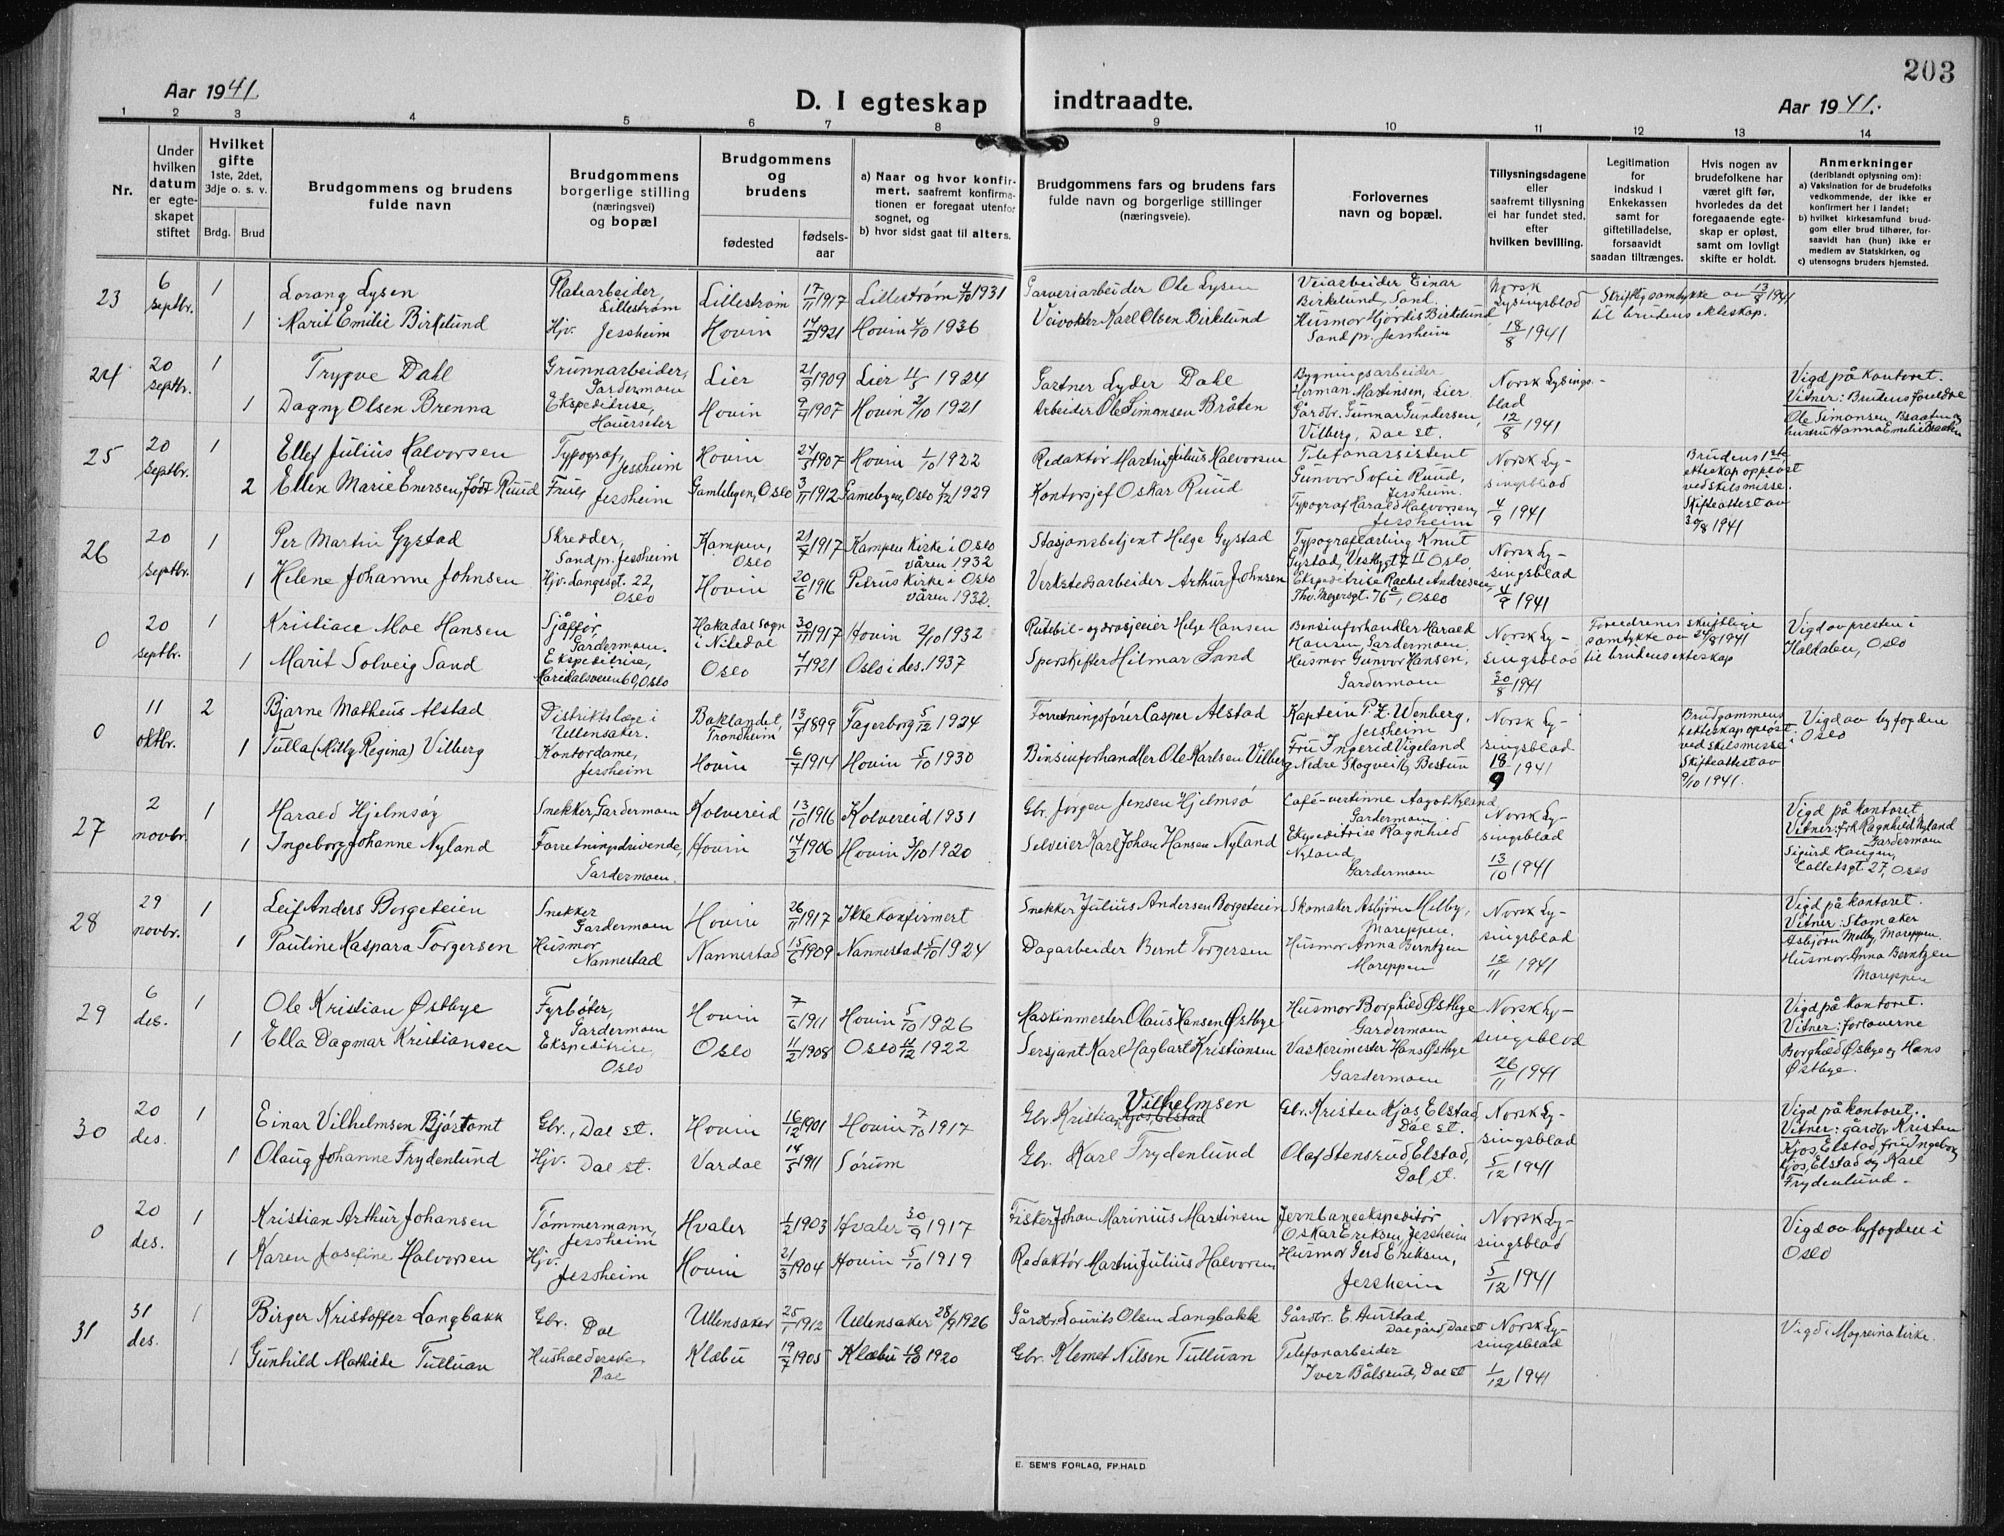 203
Aar 1941.
D. I egteskap indtraadte.
Aar 1941.
1 2 3 4 5 6 7 8 9 10 11 12 13 14
Nr.
Under hvilken datum er egteskapet stiftet
Hvilket gifte 1ste, 2det, 3dje o. s. v.
Brdg. Brud
Brudgommens og brudens fulde navn
Brudgommens borgerlige stilling (næringsvei) og bopæl
Brudgommens og brudens
fødested fødselsaar
a) Naar og hvor konfirmert, saafremt konfirmationen er foregaat utenfor sognet, og
b) hvor sidst gaat til alters.
Brudgommens fars og brudens fars fulde navn og borgerlige stillinger (næringsveie).
Forlovernes navn og bopæl.
Tillysningsdagene eller saafremt tillysning ei har fundet sted, efter hvilken bevilling.
Legitimation for indskud i Enkekassen samt for giftetilladelse, forsaavidt saadan tiltrænges.
Hvis nogen av brudefolkene har været gift før, hvorledes da det foregaaende egteskap er opløst, samt om lovlig skifte er holdt.
Anmerkninger (deriblandt oplysning om):
a) Vaksination for de brudefolks vedkommende, der ikke er konfirmert her i landet;
b) hvilket kirkesamfund brudgom eller brud tilhører, forsaavidt han (hun) ikke er medlem av Statskirken, og
c) utensogns bruders hjemsted.
23 6 septbr. 1 Lorang Lysen Platearbeider, Lillestrøm Lillestrøm 17/11 1917 Lillestrøm 4/10 1931 Garveriarbeider Ole Lysen Veiarbeider Einar Birkelund, Sand. Norsk Lysingsblad 18/8 1941 Skriftlig samtykke av 13/8 1941 til brudens ekteskap.
1 Marit Emilie Birkelund Hjv. Jessheim Hovin 14/2 1921 Hovin 4/10 1936 Veivokter Karl Olsen Birkelund Husmor Hjördis Birkelund Sand pr. Jessheim
24 20 septbr. 1 Trygve Dahl Grunnarbeider, Gardermoen Lier 21/9 1909 Lier 11/5 1924 Gartner Lyder Dahl Bygningsarbeider Herman Martinsen, Lier Norsk Lysingsblad 12/8 1941 Vigd på kontoret. Vitner: Brudens foreldre Ole Simonsen Braaten og hustru Hanna Emilie Braaten
1 Dagny Olsen Brenna Ekspeditrise, Haverseter Hovin 9/7 1907 Hovin 2/10 1921 Arbeider Ole Simonsen Bråten Gårdbr. Gunnar Gundersen, Vilberg, Dal st.
25 20 septbr. 1 Ellef Julius Halvorsen Typograf, Jessheim Hovin 24/3 1907 Hovin 1/10 1922 Redaktör Martin Julius Halvorsen Telefonassistent Gunvor Sofie Ruud, Jessheim. Norsk Lysingsblad 4/9 1941 Brudens 1ste ekteskap oppløst ved skilsmisse. Skifteattest av 30/8 1941
2 Ellen Marie Enersen, født Ruud Frue, Jessheim Gamlebyen, Oslo 3/11 1912 Gamlebyen, Oslo 4/12 1929 Kontorsjef Oskar Ruud Typograf Harald Halvorsen, Jessheim
26 20 septbr. 1 Per Martin Gystad Skredder, Sand pr. Jessheim Kampen, Oslo 21/7 1917 Kampen Kirke i Oslo våren 1932 Stasjonsbetjent Helge Gystad Typograflærling Knut Gystad, Vestbygt 4 II Oslo Norsk Lysingsblad 4/9 1941
1 Helene Johanne Johnsen Hjv. Langesgt. 22, Oslo Hovin 20/6 1916 Petrus Kirke i Oslo våren 1932. Verkstedsarbeider Arthur Johnsen Ekspeditrise Rachel Andresen, Thv. Meyersgt. 76 c, Oslo
0 20 septbr. 1 Kristian Moe Hansen Sjåffør, Gardermoen. Hakadal sogn i Nitedal 30/11 1917 Hovin 2/10 1932 Rutebil- og drosjeeier Helge Hansen Bensinforhandler Harald Hansen, Gardermoen. Norsk Lysingsblad 30/8 1941 Foreldrenes skriftlige samtykke av 24/8 1941 til brudens ekteskap Vigd av presten i Haldalen, Oslo
1 Marit Solveig Sand Ekspeditrise, Maridalsveien 60, Oslo Oslo 4/7 1921 Oslo i des. 1937 Sporskifter Hilmar Sand Husmor Gunvor Hansen, Gardermoen
0 11 oktbr. 2 Bjarne Matheus Alstad Distriktslege i Ullensaker. Baklandet, Trondheim 13/4 1899 Fagerborg 5/12 1924 Forretningsfører Casper Alstad Kaptein P. Z. Wenberg, Jessheim Norsk Lysingsblad 18/9 1941 Brudgommens 1 ekteskap oppløst ved skilsmisse. Skifteattest av 9/10 1941. Vigd av byfogden i Oslo
1 Tulla (Milly Regina) Vilberg Kontordame, Jessheim Hovin 6/7 1914 Hovin 5/10 1930 Bensinforhandler Ole Karlsen Vilberg Fru Ingerid Vigeland Nedre Skogvei 16, Bestun
27 2 novbr. 1 Harald Hjelmsöy Snekker, Gardermoen Kolvereid 13/10 1916 Kolvereid 1931 Gbr. Jørgen Jensen Hjelmsö Café-vertinne Aagot Nyland, Gardermoen. Norsk Lysingsblad 13/10 1941 Vigd på kontoret. Vitner: frk Ragnhild Nyland Gardermoen Sigurd Haugen, Colletsgt. 27, Oslo
1 Ingeborg Johanne Nyland Forretningsdrivende, Gardermoen. Hovin 14/2 1906 Hovin 3/10 1920 Selveier Karl Johan Hansen Nyland Ekspeditrise Ragnhild Nyland, Gardermoen
28 29 novbr. 1 Leif Anders Borgeteien Snekker Gardermoen Hovin 26/11 1917 Ikke konfirmert Snekker Julius Andersen Borgeteien Skomaker Asbjørn Melby, Mareppen. Norsk Lysingsblad 12/11 1941 Vigd på kontoret. Vitner: Skomaker Asbjørn Melby, Mareppen. Husmor Anna Berntzen Mareppen
1 Pauline Kaspara Torgersen Husmor Nannestad Nannestad 15/6 1909 Nannestad 5/10 1924 Dagarbeider Bernt Torgersen Husmor Anna Berntzen Mareppen
29 6 des. 1 Ole Kristian Østbye Fyrbøter, Gardermoen Hovin 7/6 1911 Hovin 5/10 1926 Maskinmester Olaus Hansen Østbye Husmor Borghild Østbye Gardermoen Norsk Lysingsblad 26/11 1941 Vigd på kontoret. Vitner: Forloverne Borghild Østbye og Hans Østbye.
1 Ella Dagmar Kristiansen Ekspeditrise, Oslo Oslo 11/2 1908 Oslo 11/12 1922 Sersjant Karl Hagbart Kristiansen Vaskerimester Hans Østbye Gardermoen
30 20 des. 1 Einar Vilhelmsen Bjørtomt Gbr., Dal st. Hovin 16/12 1901 Hovin 7/10 1917 Gbr. Kristian Vilhelmsen Kjos, Elstad Gbr. Kristen Kjos, Elstad Dal st. Norsk Lysingsblad 5/12 1941 Vigd på kontoret. Vitner: gårdbr Kristen Kjos, Elstad, fru Ingeborg Kjos, Elstad og Karl Frydenlund.
1 Olaug Johanne Frydenlund Hjv. Dal st. Vardal 14/5 1911 Sørum Gbr. Karl Frydenlund Olaf Stensrud Elstad, Dal st.
0 20 des. 1 Kristian Arthur Johansen Tømmermann, Jessheim Hvaler 1/2 1903 Hvaler 30/9 1917 Fisker Johan Marinius Martinsen Jernbaneekspeditør Oskar Eriksen, Jessheim Norsk Lysingsblad 5/12 1941 Vigd av byfogden i Oslo
1 Karen Josefine Halvorsen Hjv. Jessheim Hovin 21/3 1904 Hovin 5/10 1919 Redaktør Martin Julius Halvorsen Husmor Gerd Eriksen, Jessheim
31 31 des. 1 Birger Kristoffer Langbakk Gbr. Dal Ullensaker 25/1 1912 Ullensaker 28/9 1926 Gårdbr Laurits Olsen Langbakk Gårdbr. E. Aurstad Dal gård, Dal st Norsk Lysingsblad 1/12 1941 Vigd i Mogreina Kirke.
1 Gunhild Mathilde Tulluan Husholderske Dal Klæbu 19/7 1905 Klæbu 10/10 1920 Gbr. Klemet Nilsen Tulluan Telefonarbeider Iver Bålsrud, Dal st
E. SEM'S FORLAG, FR.HALD